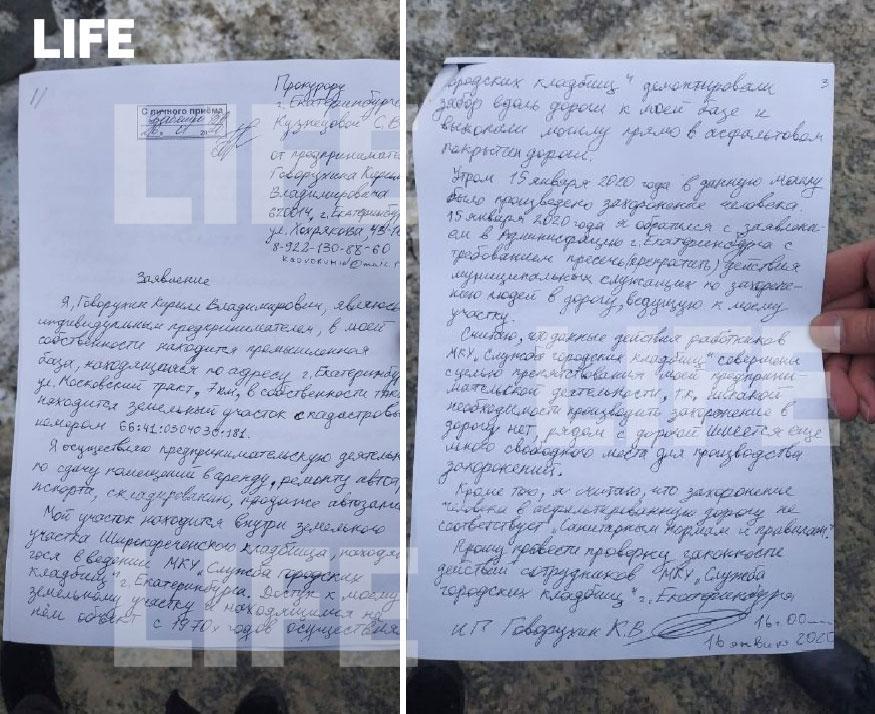 LIFE
1)
С личного приёма
Прокурору
г. Екатеринбурга
Кузнецовой С.В
от предпринимат
Говорухина Кирил
Владимировича
620014, г. Екатеринбу
ул. Хохрякова, 43-1
8-922-130-88-60
Заявление
Я, Говорухин Кирилл Владимирович, являюсь
индивидуальным предпринимателем, в моей
собственности находится промышленная
база, находящаяся по адресу г. Екатеринбу
ул. Московский тракт, 7 км, в собственности также
находится земельный участок с кадастровы
номером 66:41:0304030:181.
Я осуществляю предпринимательскую деятельн
по сдачу помещений в аренду, ремонту автот
нспорта, складированию, продаже автозапч
Мой участок находится внутри земельного
участка Широкореченского кладбища находя
гося в ведении МКУ „Служба городских
кладбищ" г. Екатеринбурга. Доступ к моему
земельному участку и находящимся на
нём объект с 1970х годов осуществля
3
городских кладбищ" демонтировали
забор вдоль дороги к моей базе и
выкопали могилу прямо в асфальтовом
покрытии дороги.
Утром 15 января 2020 года в данную могилу
было произведено захоронение человека.
15 января 2020 года я обратился с заявлени-
ем в Администрацию г. Екатеринбурга с
требованием пресечь (прекратить) действия
муниципальных служащих по захороне-
нию людей в дорогу, ведущую к моему
участку.
Считаю, что данные действия работников
МКУ „Служба городских кладбищ" совершены
с целью препятствования моей предприни-
мательской деятельности, т.к. никакой
необходимости производить захоронение в
дорогу нет, рядом с дорогой имеется еще
много свободного места для производства
захоронений.
Кроме того, я считаю, что захоронение
человека в асфальтированную дорогу не
соответствует „Санитарным нормам и правилам".
Прошу провести проверку законности
действий сотрудников МКУ „Служба
городских кладбищ" г. Екатеринбурга
ИП Говорухин К.В. 16.00
16 января 2020